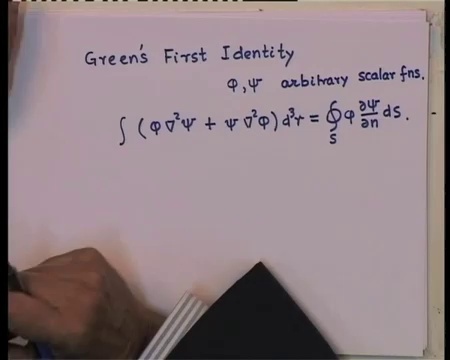 Green's First Identity
φ, ψ arbitrary scalar fns.
∫ (φ ∇²ψ + ψ ∇²φ) d³r = ∮_S φ ∂ψ/∂n dS.